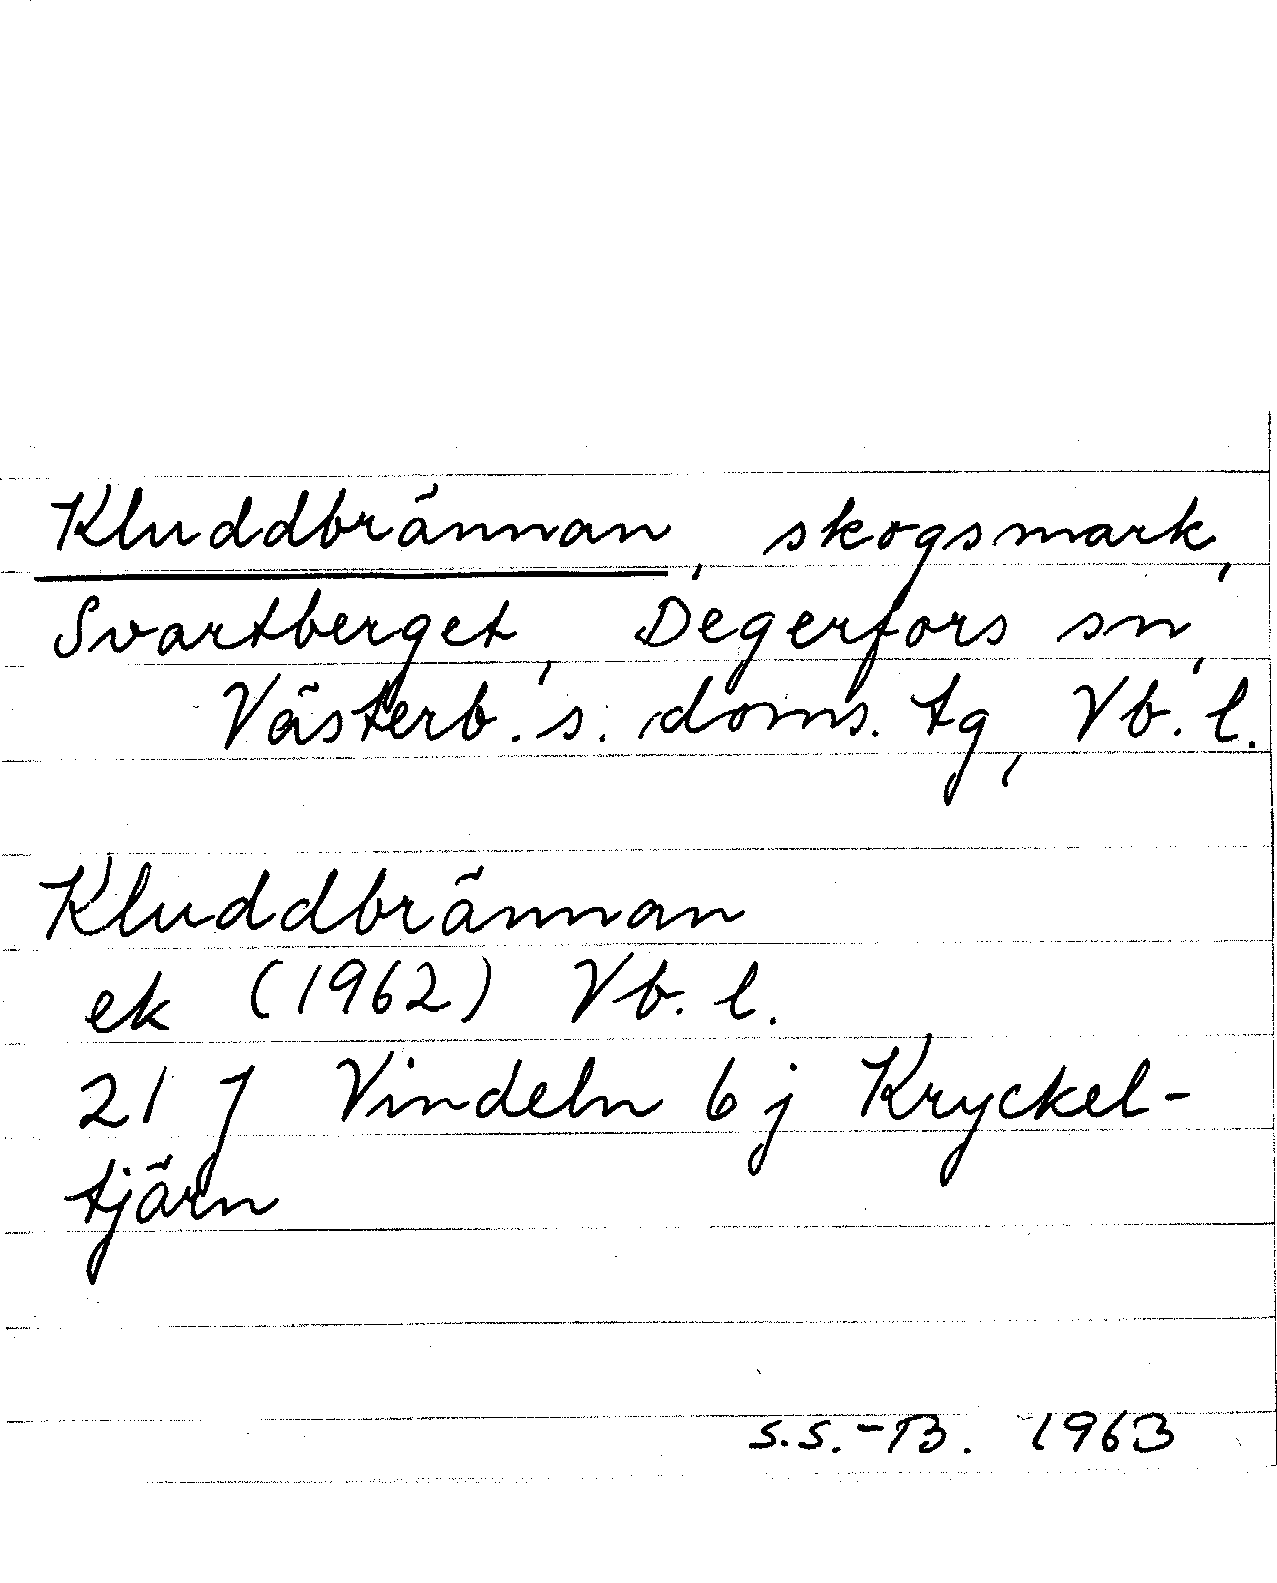 Kluddbrännan, skogsmark,
Svartberget, Degerfors sn,
Västerb. s. doms. tg, Vb. l.
Kluddbrännan
ek (1962) Vb. l.
21 J Vindeln 6 j Kryckel-
tjärn
S.S.-B. 1963